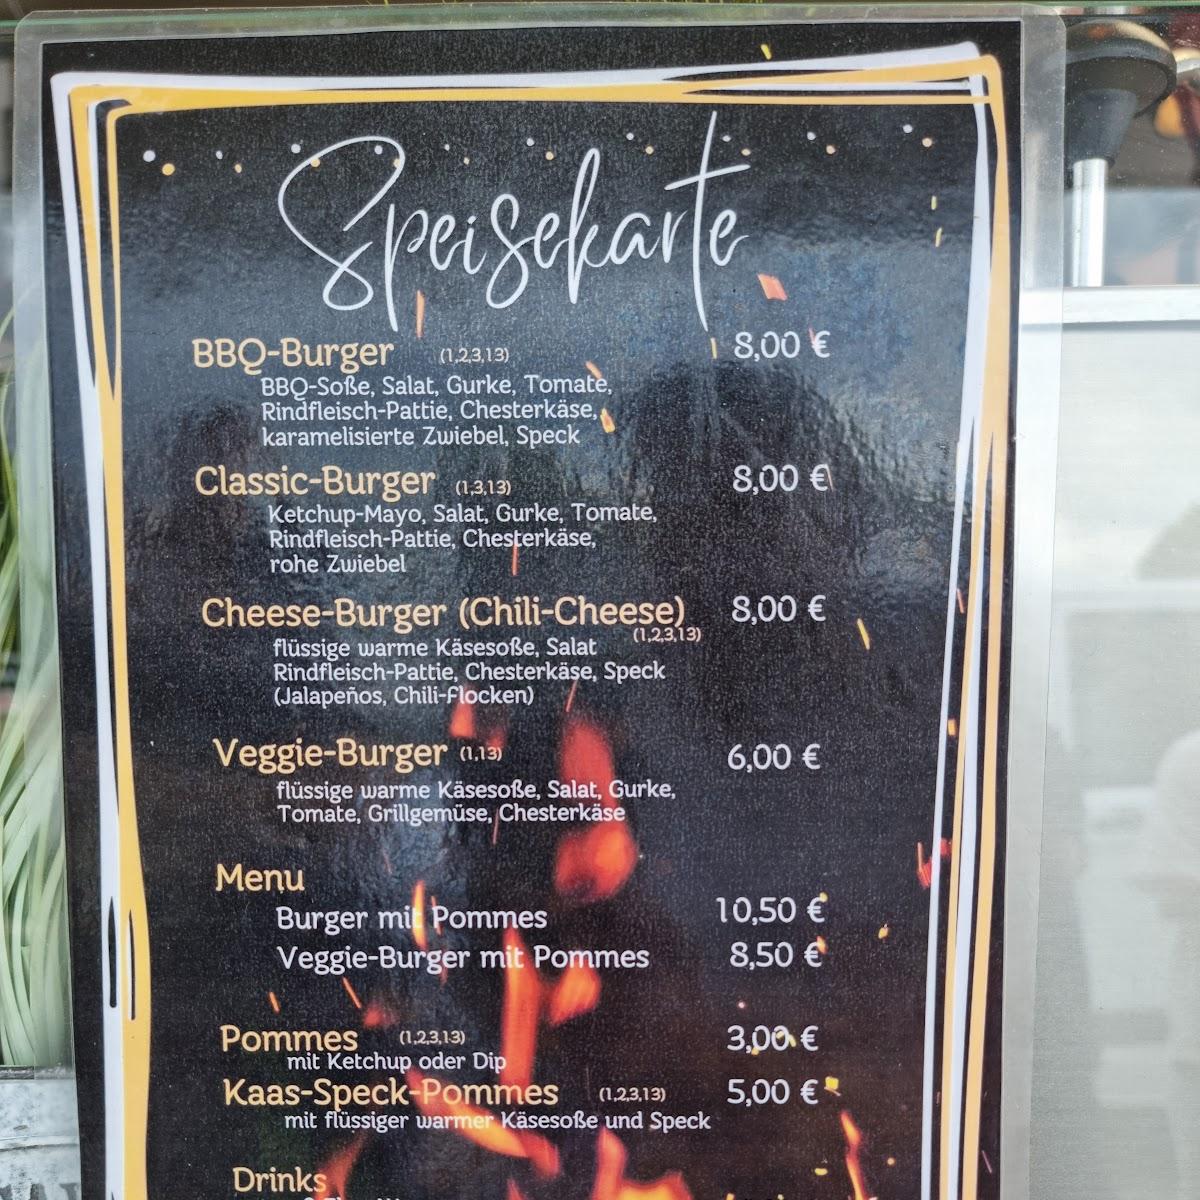 Speisekarte
BBQ-Burger (1,2,3,13) 8,00 €
BBQ-Soße, Salat, Gurke, Tomate,
Rindfleisch-Pattie, Chesterkäse,
karamelisierte Zwiebel, Speck
Classic-Burger (1,3,13) 8,00 €
Ketchup-Mayo, Salat, Gurke, Tomate,
Rindfleisch-Pattie, Chesterkäse,
rohe Zwiebel
Cheese-Burger (Chili-Cheese) 8,00 €
(1,2,3,13)
flüssige warme Käsesoße, Salat
Rindfleisch-Pattie, Chesterkäse, Speck
(Jalapeños, Chili-Flocken)
Veggie-Burger (1,13) 6,00 €
flüssige warme Käsesoße, Salat, Gurke,
Tomate, Grillgemüse, Chesterkäse
Menu
Burger mit Pommes 10,50 €
Veggie-Burger mit Pommes 8,50 €
Pommes (1,2,3,13) 3,00 €
mit Ketchup oder Dip
Kaas-Speck-Pommes (1,2,3,13) 5,00 €
mit flüssiger warmer Käsesoße und Speck
Drinks